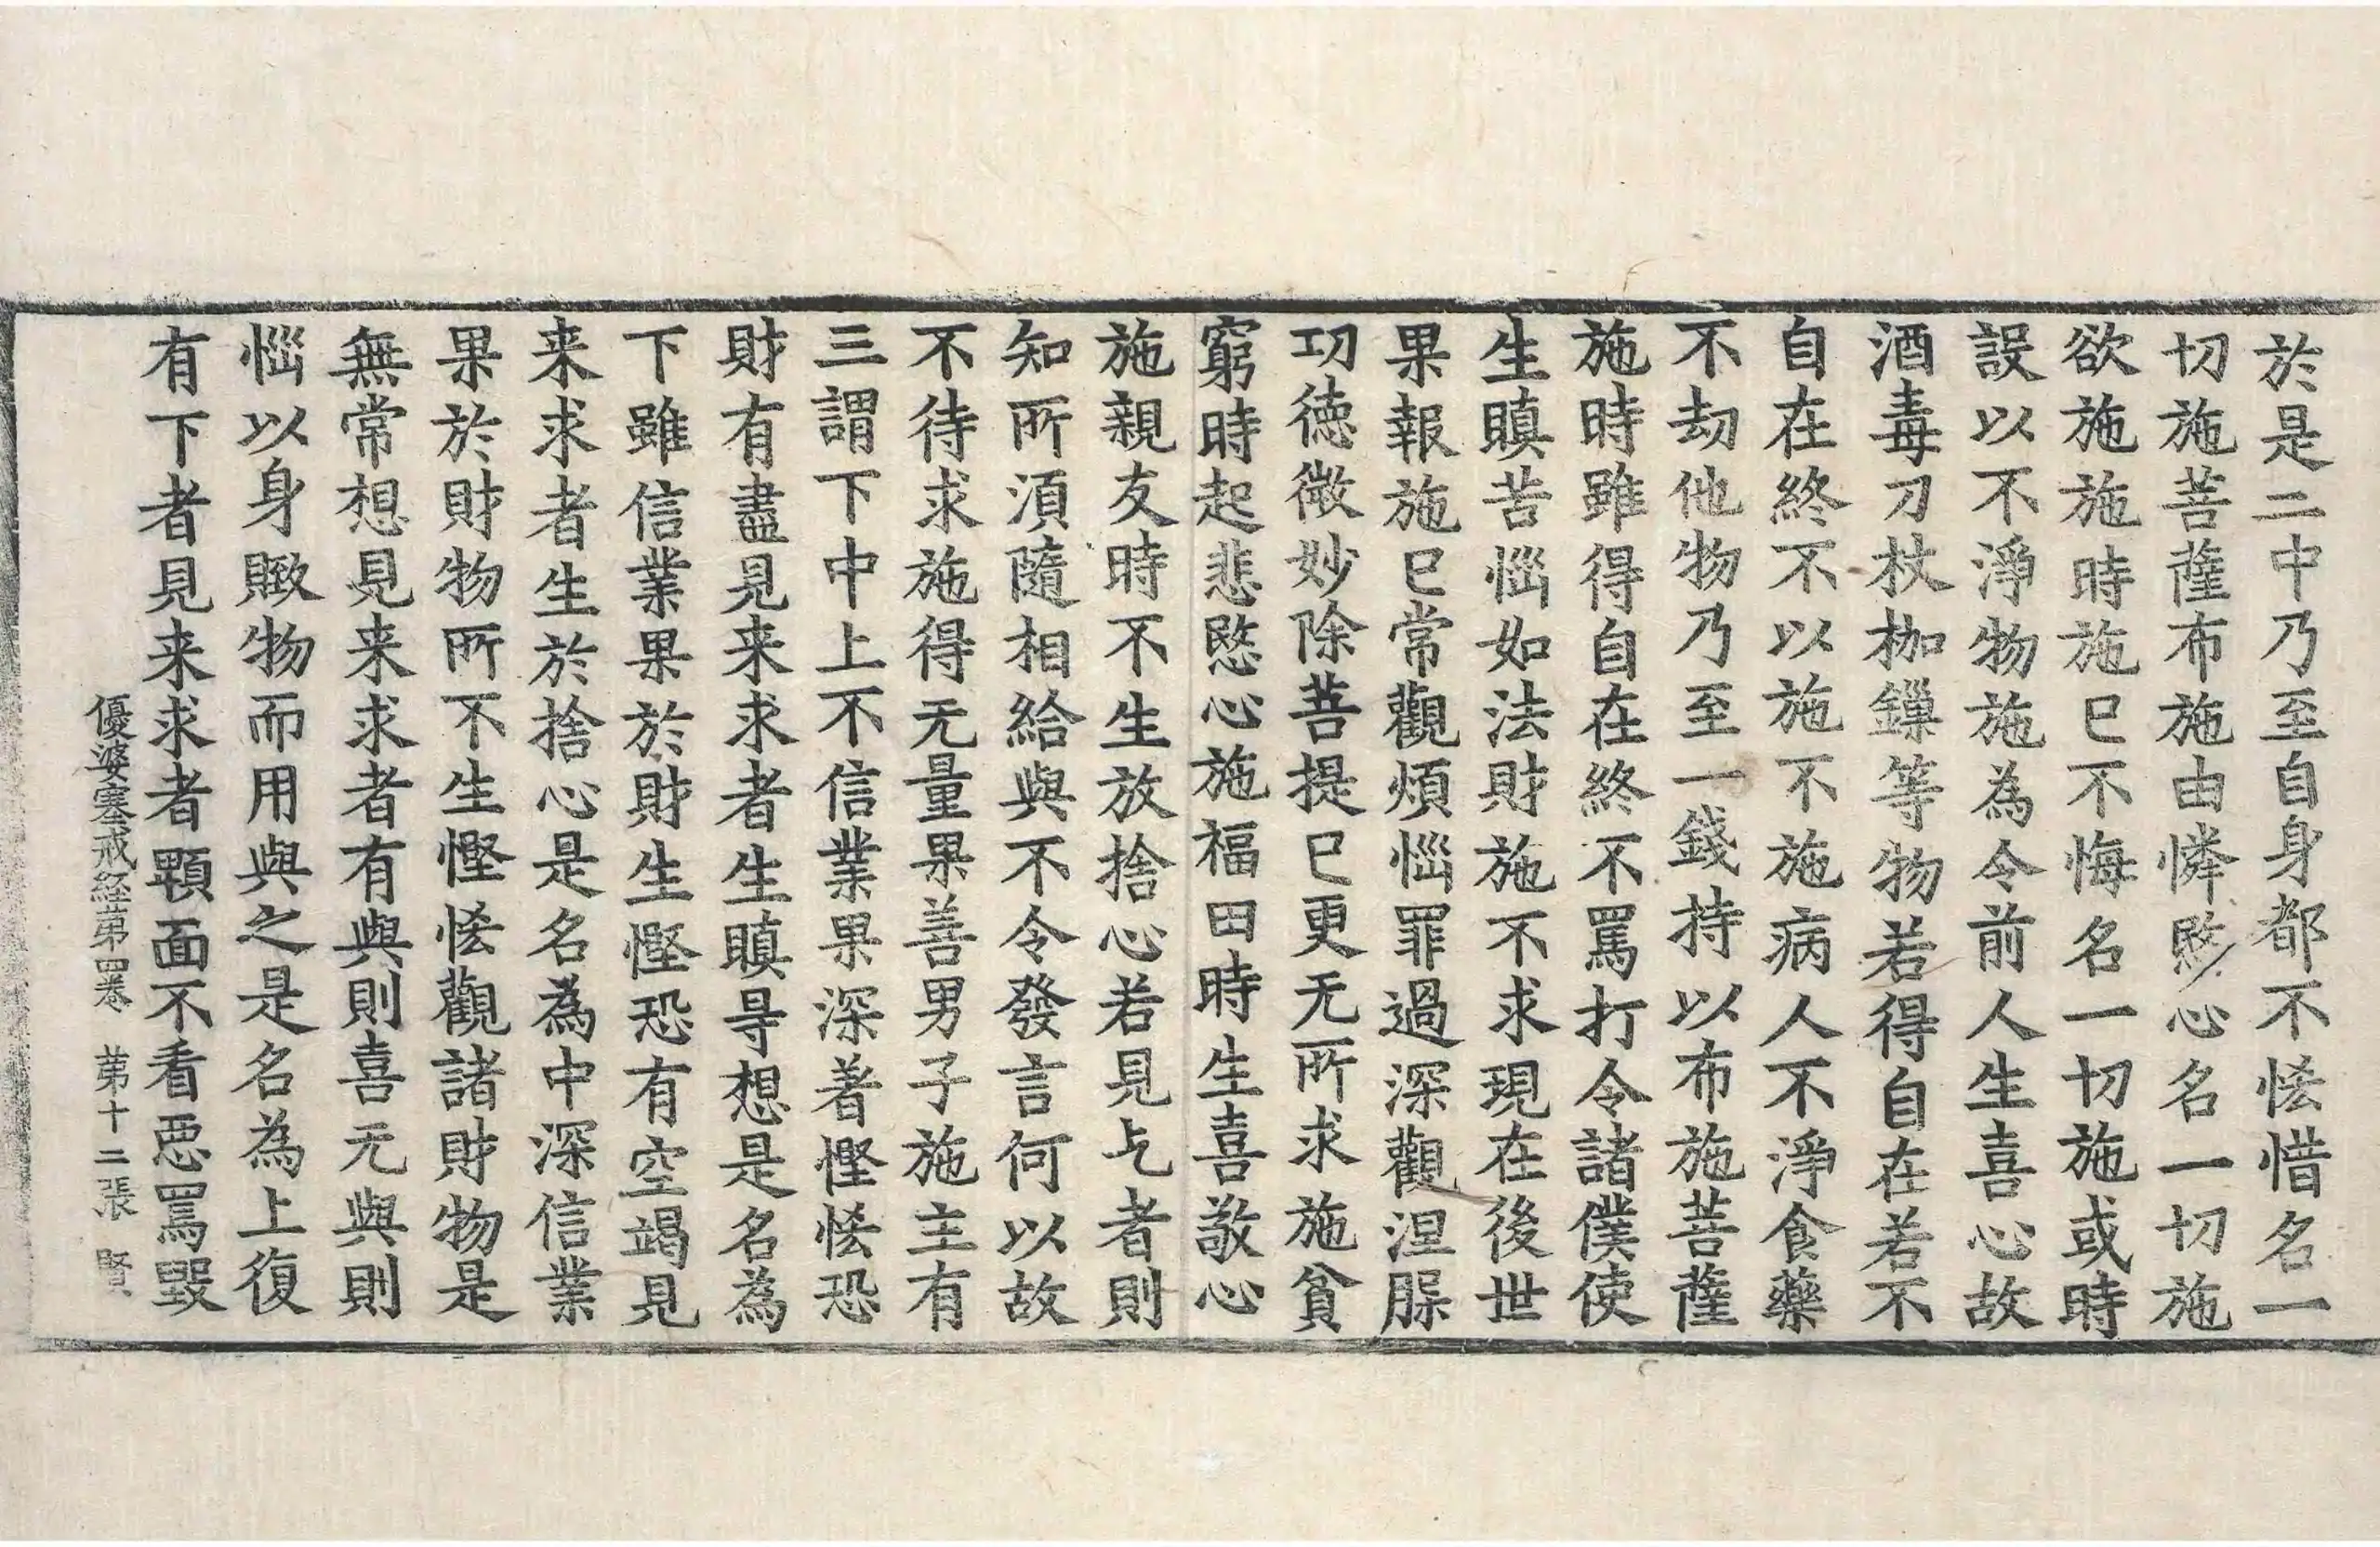 於是二中乃至自身都不悋惜名一
切施菩薩布施由憐愍心名一切施
欲施施時施已不悔名一切施或時
誤以不淨物施為令前人生喜心故
酒毒刀杖枷鏁等物若得自在若不
自在終不以施不施病人不淨食藥
不劫他物乃至一錢持以布施菩薩
施時雖得自在終不罵打令諸僕使
生瞋苦惱如法財施不求現在後世
果報施已常觀煩惱罪過深觀涅槃
功德微妙除菩提已更无所求施貧
窮時起悲愍心施福田時生喜敬心
施親友時不生放捨心若見乞者則
知所湏隨相給與不令發言何以故
不待求施得无量果善男子施主有
三謂下中上不信業果深著慳悋恐
財有盡見来求者生瞋㝵想是名為
下雖信業果於財生慳恐有空竭見
来求者生於捨心是名為中深信業
果於財物所不生慳悋觀諸財物是
無常想見来求者有與則喜无與則
惱以身贁物而用與之是名為上復
有下者見来求者顰面不看惡罵毀
優婆塞戒経苐四卷　苐十二張　賢